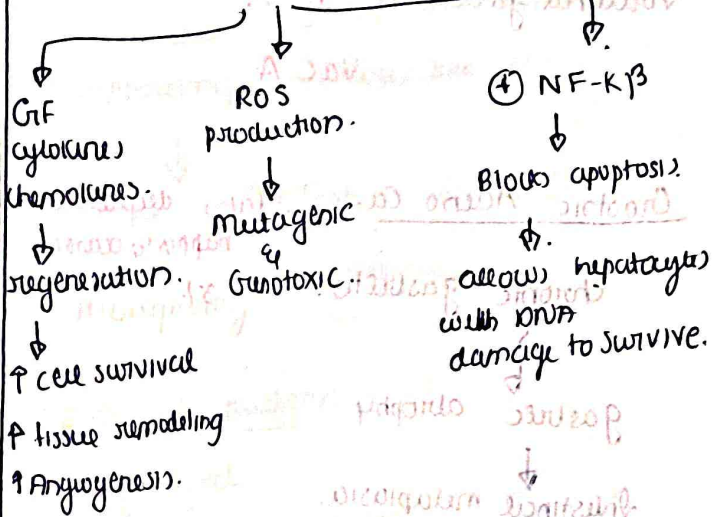 GF
cytokines
chemokines.
regeneration.
↑ cell survival
↑ tissue remodeling
↑ Angiogenesis.
ROS
production.
mutagenic
&
Genotoxic.
⊕ NF-Kβ
Blocks apoptosis.
allows hepatocytes
with DNA
damage to survive.